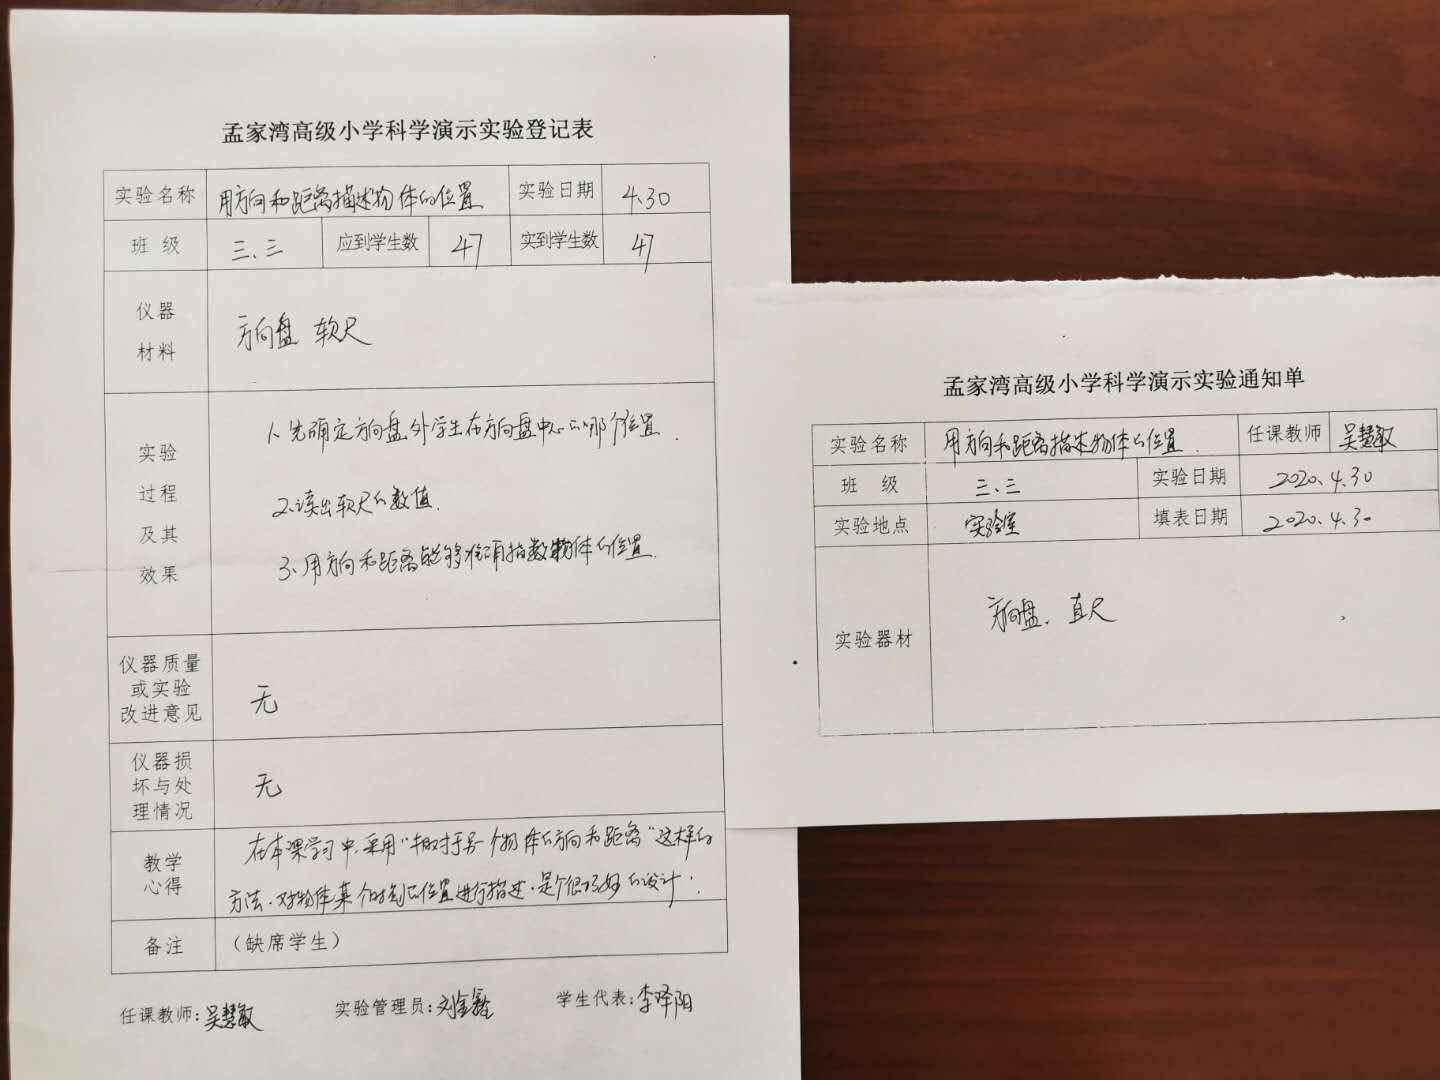 孟家湾高级小学科学演示实验登记表
实验名称 用方向和距离描述物体的位置 实验日期 4.30
班 级 三、三 应到学生数 47 实到学生数 47
仪器
材料
方向盘 软尺
实验
过程
及其
效果
1、先确定方向盘外学生在方向盘中心的哪个位置.
2、读出软尺的数值.
3、用方向和距离能够准确描数物体的位置.
仪器质量
或实验
改进意见
无
仪器损
坏与处
理情况
无
教学
心得
在本课学习中,采用"相对于另一个物体的方向和距离"这样的
方法,对物体某个时刻的位置进行描述,是个很巧妙的设计.
备注 (缺席学生)
任课教师:吴慧敏 实验管理员:刘金 学生代表:李泽阳
孟家湾高级小学科学演示实验通知单
实验名称 用方向和距离描述物体的位置. 任课教师 吴慧敏
班 级 三、三 实验日期 2020.4.30
实验地点 实验室 填表日期 2020.4.30
实验器材 方向盘、直尺